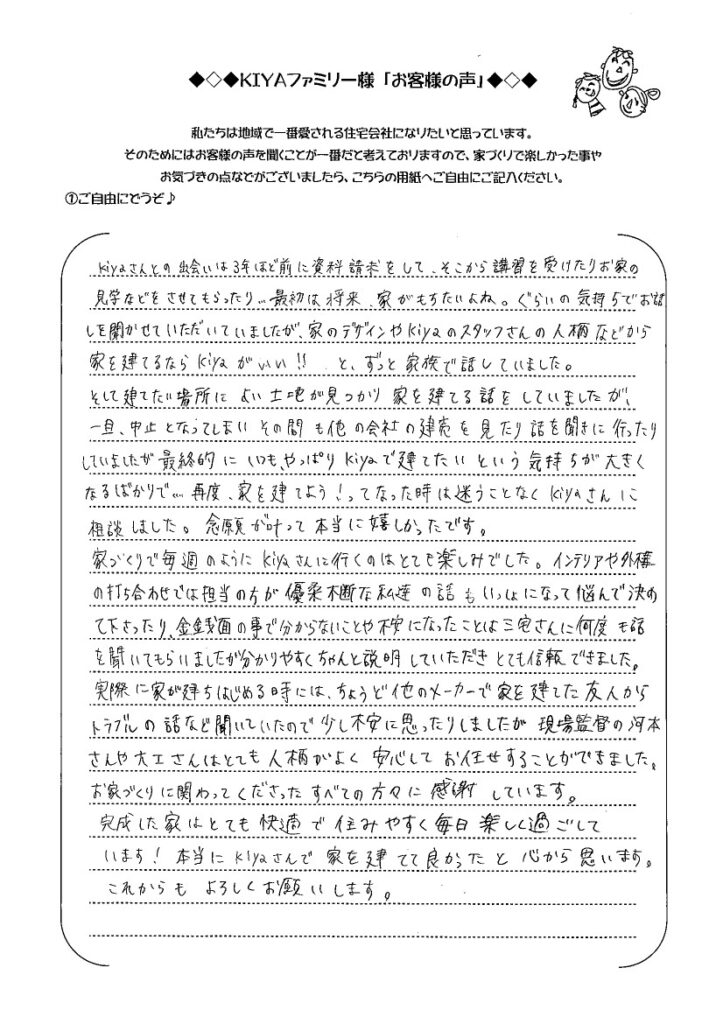 ◆◇◆KIYAファミリー様「お客様の声」◆◇◆
私たちは地域で一番愛される住宅会社になりたいと思っています。
そのためにはお客様の声を聞くことが一番だと考えておりますので、家づくりで楽しかった事や
お気づきの点などがございましたら、こちらの用紙へご自由にご記入ください。
①ご自由にどうぞ♪
kiyaさんとの出会いは3年ほど前に資料請求をして、そこから講習を受けたりお家の
見学などをさせてもらったり…最初は将来、家がもちたいよね。ぐらいの気持ちでお話
しを聞かせていただいていましたが、家のデザインやkiyaのスタッフさんの人柄などから
家を建てるならkiyaがいい!! と、ずっと家族で話していました。
そして建てたい場所によい土地が見つかり家を建てる話をしていましたが、
一旦、中止となってしまいその間も他の会社の建売を見たり話を聞きに行ったり
していましたが最終的にいつも、やっぱりkiyaで建てたいという気持ちが大きく
なるばかりで…再度、家を建てよう!ってなった時は迷うことなくkiyaさんに
相談しました。念願が叶って本当に嬉しかったです。
家づくりで毎週のようにkiyaさんに行くのはとても楽しみでした。インテリアや外構
の打ち合わせでは担当の方が優柔不断な私達の話もいっしょになって悩んで決め
て下さったり、金銭面の事で分からないことや不安になったことは三宅さんに何度も話
を聞いてもらいましたが分かりやすくちゃんと説明していただきとても信頼できました。
実際に家が建ちはじめる時には、ちょうど他のメーカーで家を建てた友人から
トラブルの話など聞いていたので少し不安に思ったりしましたが現場監督の河本
さんや大工さんはとても人柄がよく安心してお任せすることができました。
お家づくりに関わってくださったすべての方々に感謝しています。
完成した家はとても快適で住みやすく毎日楽しく過ごして
います!本当にkiyaさんで家を建てて良かったと心から思います。
これからもよろしくお願いします。